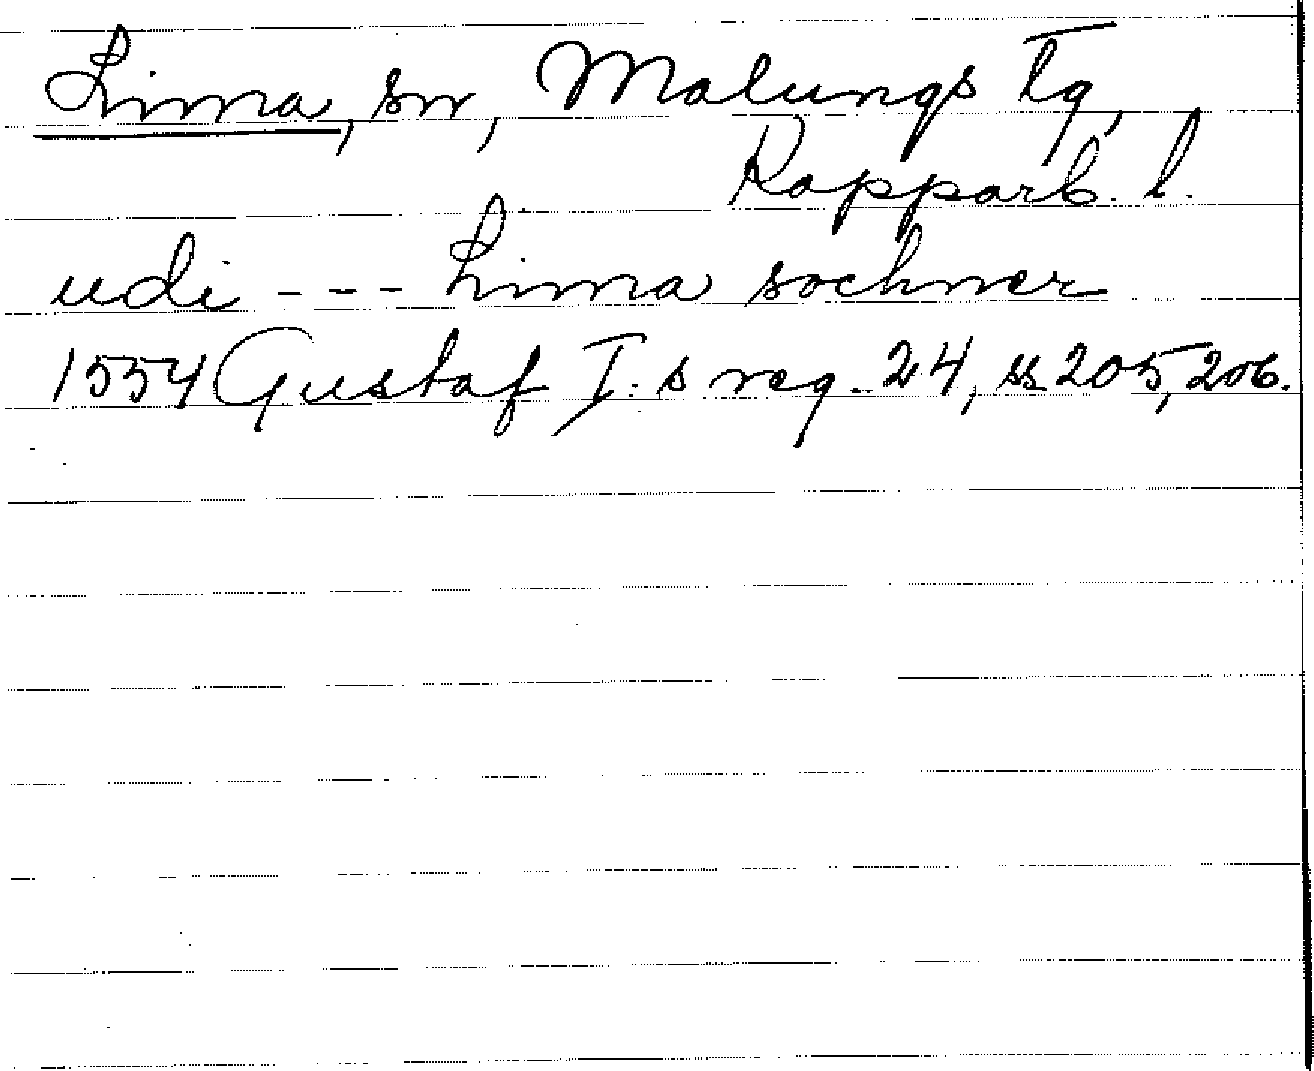 Lima, sn, Malungs tg,
Kopparb. l.
udi - - - Lima sochner
1554 Gustaf I:s reg. 24, ss 205, 206.